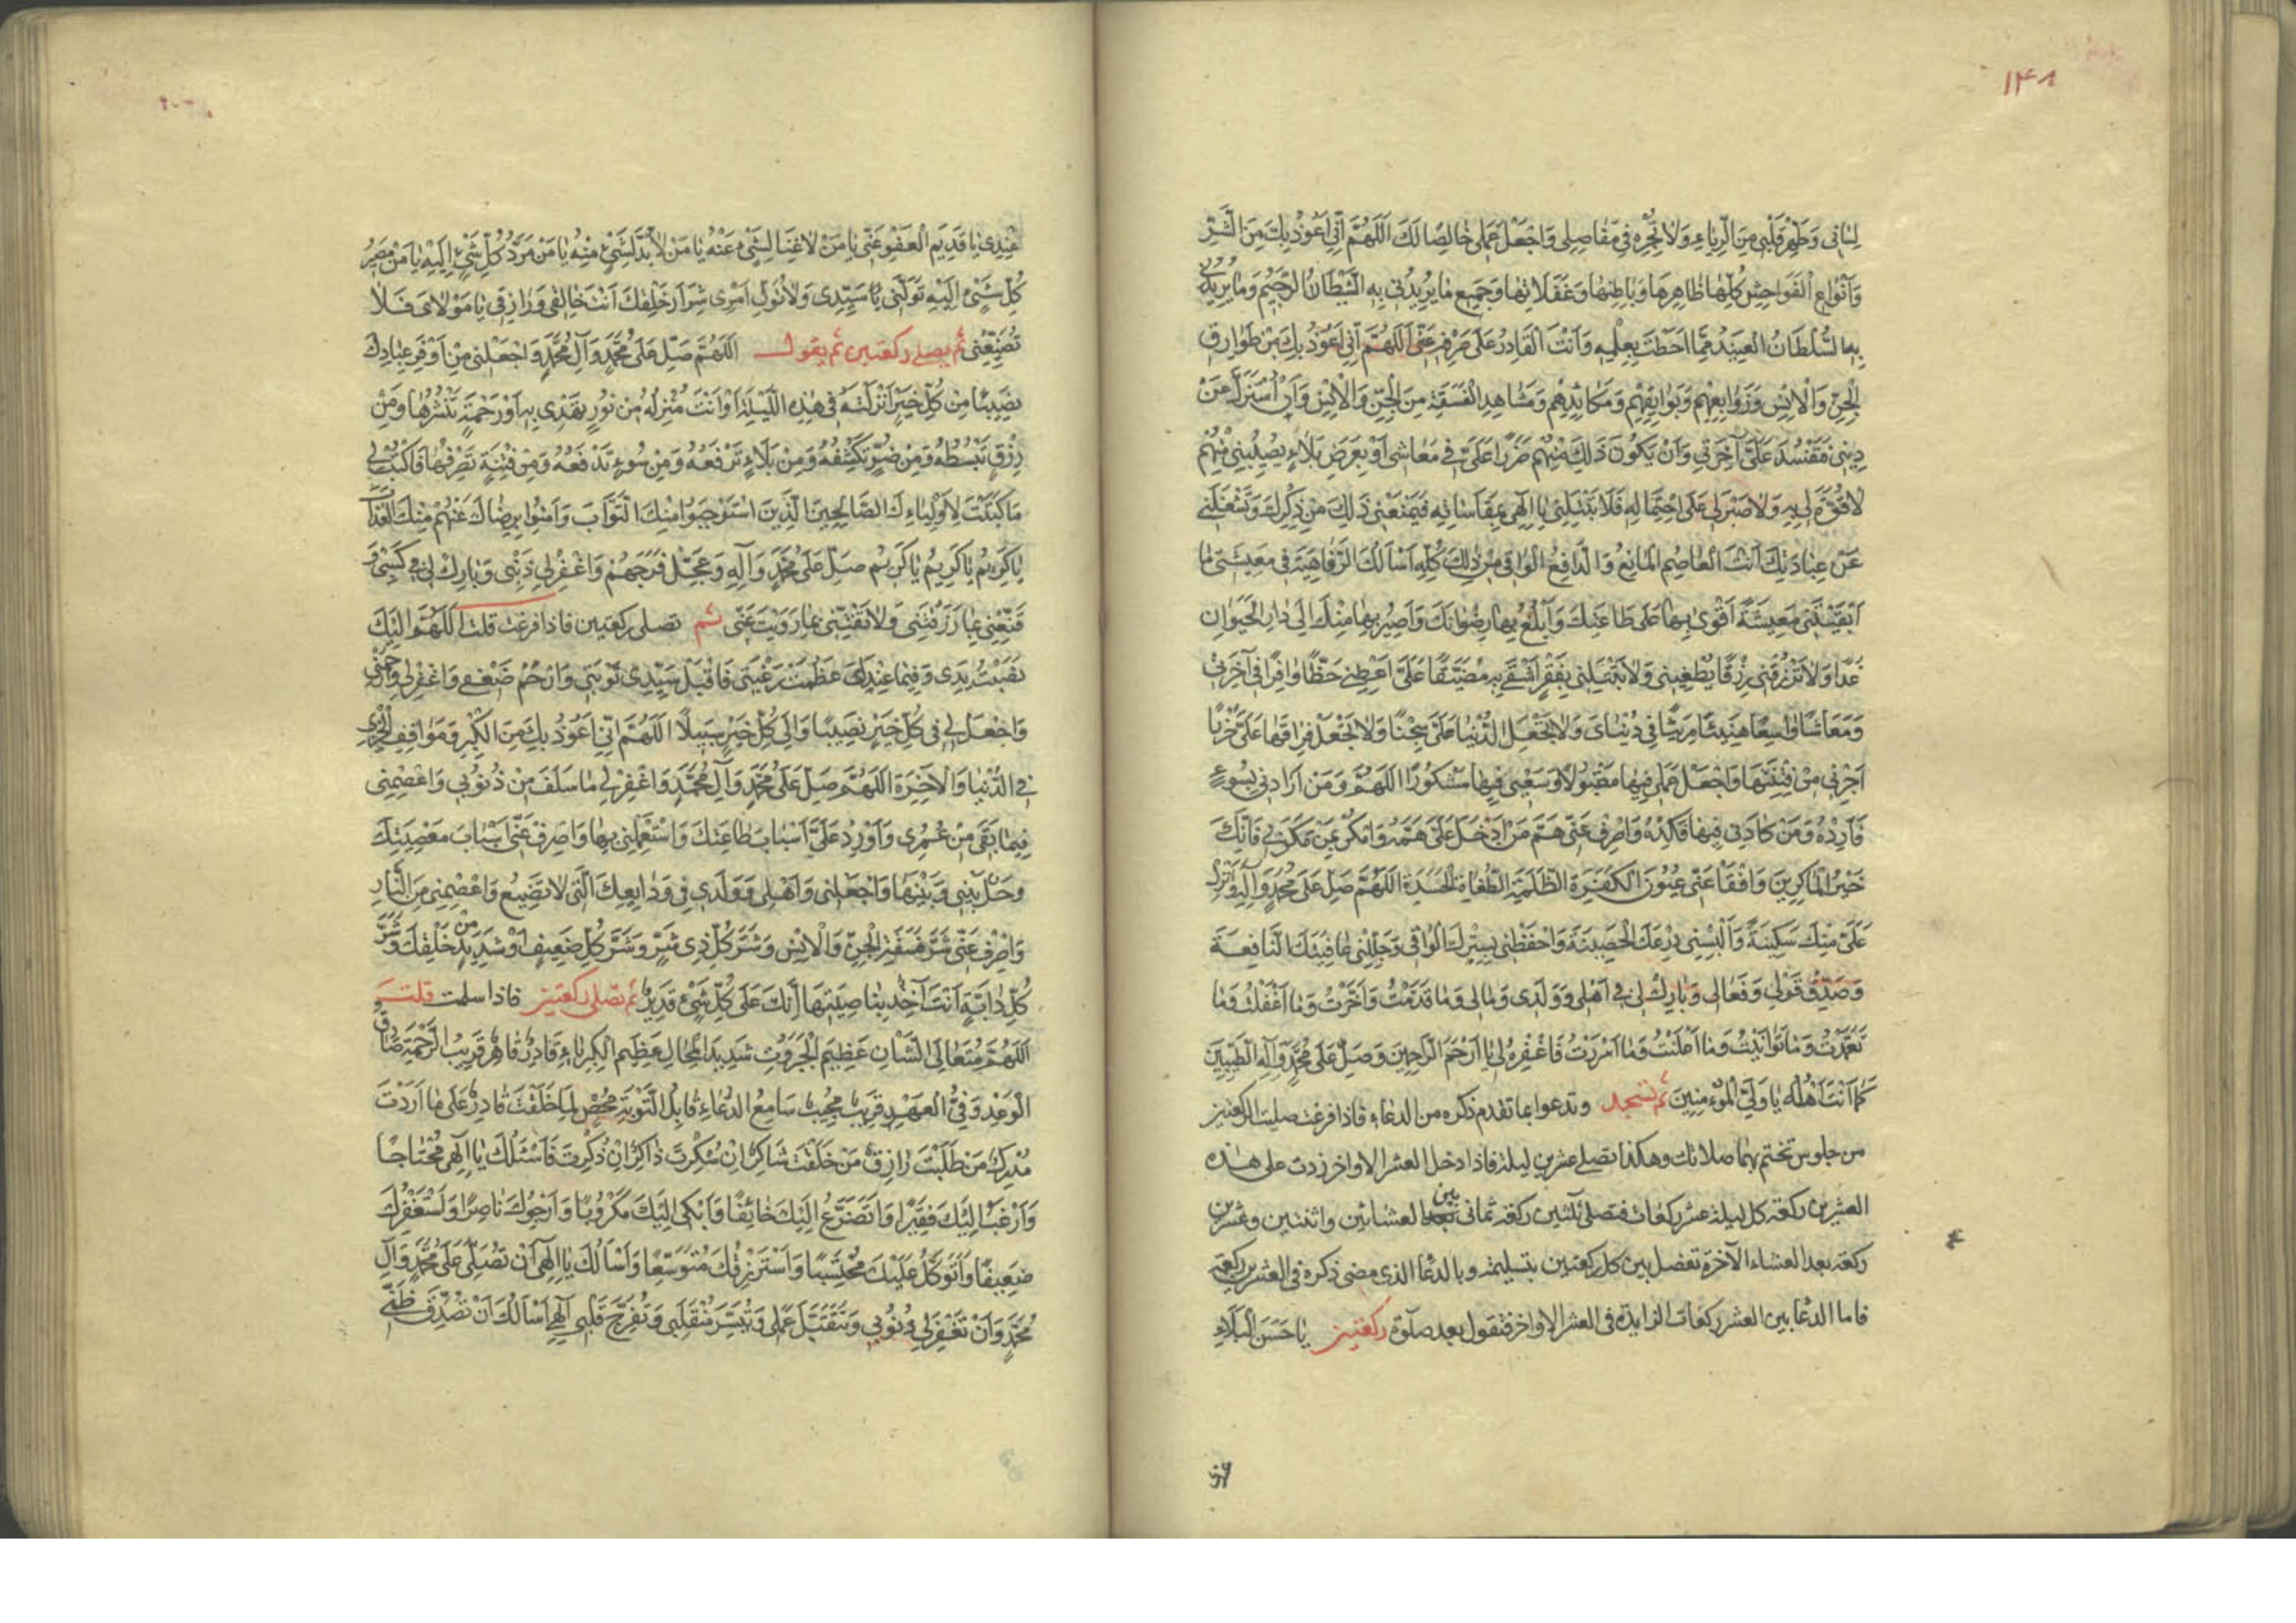 ١٤٨
لِسٰانى وَطَهِّرْ قَلْبى مِنَ الرِّيٰاءِ وَلاٰ تُجْرِهِ فى مَفٰاصِلى وَاجْعَلْ عَمَلى خٰالِصًا لَكَ اَللّٰهُمَّ اِنّى اَعُوذُ بِكَ مِنَ الشَّرِّ
وَاَنْوٰاعِ الْفَوٰاحِشِ كُلِّهٰا ظٰاهِرِهٰا وَبٰاطِنِهٰا وَغَفَلاٰتِهٰا وَجَميعِ مٰا يُريدُنى بِهِ الشَّيْطٰانُ الرَّجيمُ وَمٰا يُريدُنى
بِهِ السُّلْطٰانُ الْعَنيدُ مِمّٰا اَحَطْتَ بِعِلْمِهِ وَاَنْتَ الْقٰادِرُ عَلىٰ صَرْفِهِ عَنّى اَللّٰهُمَّ اِنّى اَعُوذُ بِكَ مِنْ طَوٰارِقِ
الْجِنِّ وَالْاِنْسِ وَزَوٰابِعِهِمْ وَبَوٰائِقِهِمْ وَمَكٰائِدِهِمْ وَمَشٰاهِدِ الْفَسَقَةِ مِنَ الْجِنِّ وَالْاِنْسِ وَاَنْ اُسْتَزَلَّ عَنْ
دينى فَتَفْسُدَ عَلَىَّ آخِرَتى وَاَنْ يَكُونَ ذٰلِكَ مِنْهُمْ ضَرَرًا عَلَىَّ فى مَعٰاشى اَوْ بِعَرَضِ بَلاٰءٍ يُصيبُنى مِنْهُمْ
لاٰ قُوَّةَ لى بِهِ وَلاٰ صَبْرَ لى عَلَى احْتِمٰالِهِ فَلاٰ تَبْتَلِنى يٰا اِلٰهى بِمُقٰاسٰاتِهِ فَيَمْنَعُنى ذٰلِكَ مِنْ ذِكْرِكَ وَيَشْغَلُنى
عَنْ عِبٰادَتِكَ اَنْتَ الْعٰاصِمُ الْمٰانِعُ وَالدّٰافِعُ الْوٰاقى مِنْ ذٰلِكَ كُلِّهِ اَسْاَلُكَ الرَّفٰاهِيَةَ فى مَعيشَتى مٰا
اَبْقَيْتَنى مَعيشَةً اَقْوىٰ بِهٰا عَلىٰ طٰاعَتِكَ وَاَبْلُغُ بِهٰا رِضْوٰانَكَ وَاَصيرُ بِهٰا مِنْكَ اِلىٰ دٰارِ الْحَيَوٰانِ
غَدًا وَلاٰ تَرْزُقْنى رِزْقًا يُطْغينى وَلاٰ تَبْتَلِنى بِفَقْرٍ اَشْقىٰ بِهِ مُضَيَّقًا عَلَىَّ اَعْطِنى حَظًّا وٰافِرًا فى آخِرَتى
وَمَعٰاشًا وٰاسِعًا هَنيئًا مَريئًا فى دُنْيٰاىَ وَلاٰ تَجْعَلِ الدُّنْيٰا عَلَىَّ سِجْنًا وَلاٰ تَجْعَلْ فِرٰاقَهٰا عَلَىَّ حُزْنًا
اَجِرْنى مِنْ فِتْنَتِهٰا وَاجْعَلْ عَمَلى فيهٰا مَقْبُولًا وَسَعْيى فيهٰا مَشْكُورًا اَللّٰهُمَّ وَمَنْ اَرٰادَنى بِسُوءٍ
فَاَرِدْهُ وَمَنْ كٰادَنى فيهٰا فَكِدْهُ وَاصْرِفْ عَنّى هَمَّ مَنْ اَدْخَلَ عَلَىَّ هَمَّهُ وَامْكُرْ بِمَنْ مَكَرَ بى فَاِنَّكَ
خَيْرُ الْمٰاكِرينَ وَافْقَأْ عَنّى عُيُونَ الْكَفَرَةِ الظَّلَمَةِ الطُّغٰاةِ الْحَسَدَةِ اَللّٰهُمَّ صَلِّ عَلىٰ مُحَمَّدٍ وَآلِهِ وَاَنْزِلْ
عَلَىَّ مِنْكَ سَكينَةً وَاَلْبِسْنى دِرْعَكَ الْحَصينَةَ وَاحْفَظْنى بِسِتْرِكَ الْوٰاقى وَجَلِّلْنى عٰافِيَتَكَ النّٰافِعَةَ
وَصَدِّقْ قَوْلى وَفَعٰالى وَبٰارِكْ لى فى اَهْلى وَوَلَدى وَمٰالى وَمٰا قَدَّمْتُ وَاَخَّرْتُ وَمٰا اَغْفَلْتُ وَمٰا
تَعَمَّدْتُ وَمٰا تَوٰانَيْتُ وَمٰا اَعْلَنْتُ وَمٰا اَسْرَرْتُ فَاغْفِرْهُ لى يٰا اَرْحَمَ الرّٰاحِمينَ وَصَلِّ عَلىٰ مُحَمَّدٍ وَآلِهِ الطَّيِّبينَ
كَمٰا اَنْتَ اَهْلُهُ يٰا وَلِىَّ الْمُؤْمِنينَ ثم تسجد وتدعوا بما تقدم ذكره من الدعاء فاذا فرغت صليت الركعتين
من جلوس تختم بهما صلاتك وهكذا تصلى عشرين ليلة فاذا دخل العشر الاواخر زدت على هذه
العشرين ركعة كل ليلة عشر ركعات فتصلى ثلثين ركعة ثمانى بين العشائين واثنتين وعشرين
ركعة بعد العشاء الآخرة تفصل بين كل ركعتين بتسليمة وبالدعا الذى مضى ذكره فى العشرين ركعة
فاما الدعا بين العشر ركعات الزايدة فى العشر الاواخر فتقول بعد صلوة ركعتين يٰا حَسَنَ الْبَلاٰءِ
عِنْدى يٰا قَديمَ الْعَفْوِ عَنّى يٰا مَنْ لاٰ غِنًا لِشَىْءٍ عَنْهُ يٰا مَنْ لاٰ بُدَّ لِشَىْءٍ مِنْهُ يٰا مَنْ مَرَدُّ كُلِّ شَىْءٍ اِلَيْهِ يٰا مَنْ مَصيرُ
كُلِّ شَىْءٍ اِلَيْهِ تَوَلَّنى يٰا سَيِّدى وَلاٰ تُوَلِّ اَمْرى شِرٰارَ خَلْقِكَ اَنْتَ خٰالِقى وَرٰازِقى يٰا مَوْلاٰىَ فَلاٰ
تُضَيِّعْنى ثم يصلى ركعتين ثم يقول اَللّٰهُمَّ صَلِّ عَلىٰ مُحَمَّدٍ وَآلِ مُحَمَّدٍ وَاجْعَلْنى مِنْ اَوْفَرِ عِبٰادِكَ
نَصيبًا مِنْ كُلِّ خَيْرٍ اَنْزَلْتَهُ فى هٰذِهِ اللَّيْلَةِ اَوْ اَنْتَ مُنْزِلُهُ مِنْ نُورٍ تَهْدى بِهِ اَوْ رَحْمَةٍ تَنْشُرُهٰا وَمِنْ
رِزْقٍ تَبْسُطُهُ وَمِنْ ضُرٍّ تَكْشِفُهُ وَمِنْ بَلاٰءٍ تَرْفَعُهُ وَمِنْ سُوءٍ تَدْفَعُهُ وَمِنْ فِتْنَةٍ تَصْرِفُهٰا فَاكْتُبْ لى
مٰا كَتَبْتَ لِاَوْلِيٰاءِكَ الصّٰالِحينَ الَّذينَ اسْتَوْجَبُوا مِنْكَ الثَّوٰابَ وَآمَنُوا بِرِضٰاكَ عَنْهُمْ مِنْكَ الْعَذٰابَ
يٰا كَريمُ يٰا كَريمُ يٰا كَريمُ صَلِّ عَلىٰ مُحَمَّدٍ وَآلِهِ وَعَجِّلْ فَرَجَهُمْ وَاغْفِرْ لى ذَنْبى وَبٰارِكْ لى فى كَسْبى وَ
قَنِّعْنى بِمٰا رَزَقْتَنى وَلاٰ تَفْتِنّى بِمٰا زَوَيْتَ عَنّى ثم تصلى ركعتين فاذا فرغت قلت اَللّٰهُمَّ اِلَيْكَ
نَصَبْتُ يَدى وَفيمٰا عِنْدَكَ عَظُمَتْ رَغْبَتى فَاقْبَلْ سَيِّدى تَوْبَتى وَارْحَمْ ضَعْفى وَاغْفِرْ لى وَارْحَمْنى
وَاجْعَلْ لى فى كُلِّ خَيْرٍ نَصيبًا وَاِلىٰ كُلِّ خَيْرٍ سَبيلًا اَللّٰهُمَّ اِنّى اَعُوذُ بِكَ مِنَ الْكِبْرِ وَمَوٰاقِفِ الْخِزْىِ
فِى الدُّنْيٰا وَالْآخِرَةِ اَللّٰهُمَّ صَلِّ عَلىٰ مُحَمَّدٍ وَآلِ مُحَمَّدٍ وَاغْفِرْ لى مٰا سَلَفَ مِنْ ذُنُوبى وَاعْصِمْنى
فيمٰا بَقِىَ مِنْ عُمْرى وَاَوْرِدْ عَلَىَّ اَسْبٰابَ طٰاعَتِكَ وَاسْتَعْمِلْنى بِهٰا وَاصْرِفْ عَنّى اَسْبٰابَ مَعْصِيَتِكَ
وَحُلْ بَيْنى وَبَيْنَهٰا وَاجْعَلْنى وَاَهْلى وَوَلَدى فى وَدٰايِعِكَ الَّتى لاٰ تَضيعُ وَاعْصِمْنى مِنَ النّٰارِ
وَاصْرِفْ عَنّى شَرَّ فَسَقَةِ الْجِنِّ وَالْاِنْسِ وَشَرَّ كُلِّ ذى شَرٍّ وَشَرَّ كُلِّ ضَعيفٍ اَوْ شَديدٍ مِنْ خَلْقِكَ وَشَرَّ
كُلِّ دٰابَّةٍ اَنْتَ آخِذٌ بِنٰاصِيَتِهٰا اِنَّكَ عَلىٰ كُلِّ شَىْءٍ قَديرٌ ثم تصلى ركعتين فاذا سلمت قلت
اَللّٰهُمَّ مُتَعٰالِىَ الشَّاْنِ عَظيمَ الْجَبَرُوتِ شَديدَ الْمِحٰالِ عَظيمَ الْكِبْرِيٰاءِ قٰادِرٌ قٰاهِرٌ قَريبُ الرَّحْمَةِ صٰادِقُ
الْوَعْدِ وَفِىُّ الْعَهْدِ قَريبٌ مُجيبٌ سٰامِعُ الدُّعٰاءِ قٰابِلُ التَّوْبَةِ مُحْصٍ لِمٰا خَلَقْتَ قٰادِرٌ عَلىٰ مٰا اَرَدْتَ
مُدْرِكٌ مَنْ طَلَبْتَ رٰازِقٌ مَنْ خَلَقْتَ شٰاكِرٌ اِنْ شُكِرْتَ ذٰاكِرٌ اِنْ ذُكِرْتَ فَاَسْئَلُكَ يٰا اِلٰهى مُحْتٰاجًا
وَاَرْغَبُ اِلَيْكَ فَقيرًا وَاَتَضَرَّعُ اِلَيْكَ خٰائِفًا وَاَبْكى اِلَيْكَ مَكْرُوبًا وَاَرْجُوكَ نٰاصِرًا وَاَسْتَغْفِرُكَ
ضَعيفًا وَاَتَوَكَّلُ عَلَيْكَ مُحْتَسِبًا وَاَسْتَرْزِقُكَ مُتَوَسِّعًا وَاَسْاَلُكَ يٰا اِلٰهى اَنْ تُصَلِّىَ عَلىٰ مُحَمَّدٍ وَآلِ
مُحَمَّدٍ وَاَنْ تَغْفِرَ لى ذُنُوبى وَتَتَقَبَّلَ عَمَلى وَتُيَسِّرَ مُنْقَلَبى وَتُفَرِّجَ قَلْبى اِلٰهى اَسْاَلُكَ اَنْ تُصَدِّقَ ظَنّى